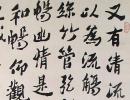 又有清流
以為流觴
絲竹管弦
暢幽情是
和暢仰觀